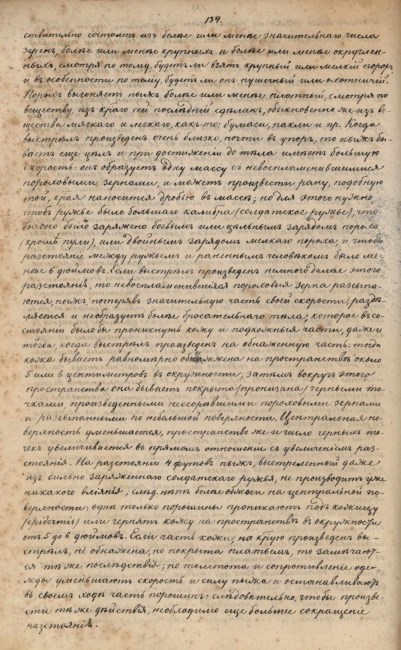 134.
ствительно состоитъ изъ болѣе или менѣе значительнаго числа
зеренъ, болѣе или менѣе крупныхъ и болѣе или менѣе округлен-
ныхъ, смотря по тому, будетъ ли взятъ крупный или мелкій порохъ
и въ особенности по тому, будетъ ли онъ пушечный или охотничій.
Порохъ выгоняетъ пыжъ болѣе или менѣе плотный, смотря по
веществу, изъ коего сей послѣдній сдѣланъ, обыкновенно же изъ ве-
щества мягкаго и легкаго, какъ-то: бумаги, пакли и пр. Когда
выстрѣлъ произведенъ очень близко, почти въ упоръ, то пыжъ бы-
ваетъ еще цѣлъ и при достиженіи до тѣла имѣетъ большую
скорость: онъ образуетъ одну массу съ невоспламенившимися
пороховыми зернами, и можетъ произвести рану, подобную
той, какая наносится дробью въ массѣ; но для этого нужно,
чтобъ ружье было большаго калибра (солдатское ружье), что-
бы оно было заряжено боевымъ или цѣльнымъ зарядомъ пороха
(кромѣ пули), или двойнымъ зарядомъ мелкаго пороха; и чтобы
разстояніе между ружьемъ и раненнымъ человѣкомъ было ме-
нѣе 6 дюймовъ. Если выстрѣлъ произведенъ немного далѣе этого
разстоянія, то невоспламенившіяся пороховыя зерна разсыпа-
ются, пыжъ, потерявъ значительную часть своей скорости, раздѣ-
ляется и необразуетъ болѣе бросательнаго тѣла, которое въ со-
стояніи было бы проникнуть кожу и подкожныя части, даже и
тогда когда выстрѣлъ произведенъ на обнаженную часть: тогда
кожа бываетъ равномѣрно на пространствѣ около
5 или 6 центиметровъ въ окружности, затѣмъ вокругъ этого
пространства она бываетъ покрыта (пронизана) черными то-
чками, произведенными несгоравшими пороховыми зернами
и разсѣянными по небольшой поверхности. Центральная по-
верхность уменьшается, пространство же и число черныхъ то-
чекъ увеличивается въ прямомъ отношеніи съ увеличеніемъ раз-
стоянія. На разстояніи 4 футовъ пыжъ, выстрѣленный даже
изъ сильно заряженнаго солдатскаго ружья, не производитъ уже
никакого вліянія; нѣтъ болѣе на центральной по-
верхности; однѣ только порошины проникаютъ подъ кожицу
(epidermis) или чернятъ кожу на пространствѣ въ окружности
отъ 5 до 6 дюймовъ. Если часть кожи, на кою произведенъ вы-
стрѣлъ, не обнажена, но покрыта платьемъ, то замѣчают-
ся тѣ же послѣдствія; но толстота и сопротивленіе оде-
жды уменьшаютъ скорость и силу пыжа и останавливаютъ
въ своемъ ходѣ часть порошинъ: слѣдовательно, чтобы произве-
сти тѣ же дѣйствія, необходимо еще большее сокращеніе
разстоянія.